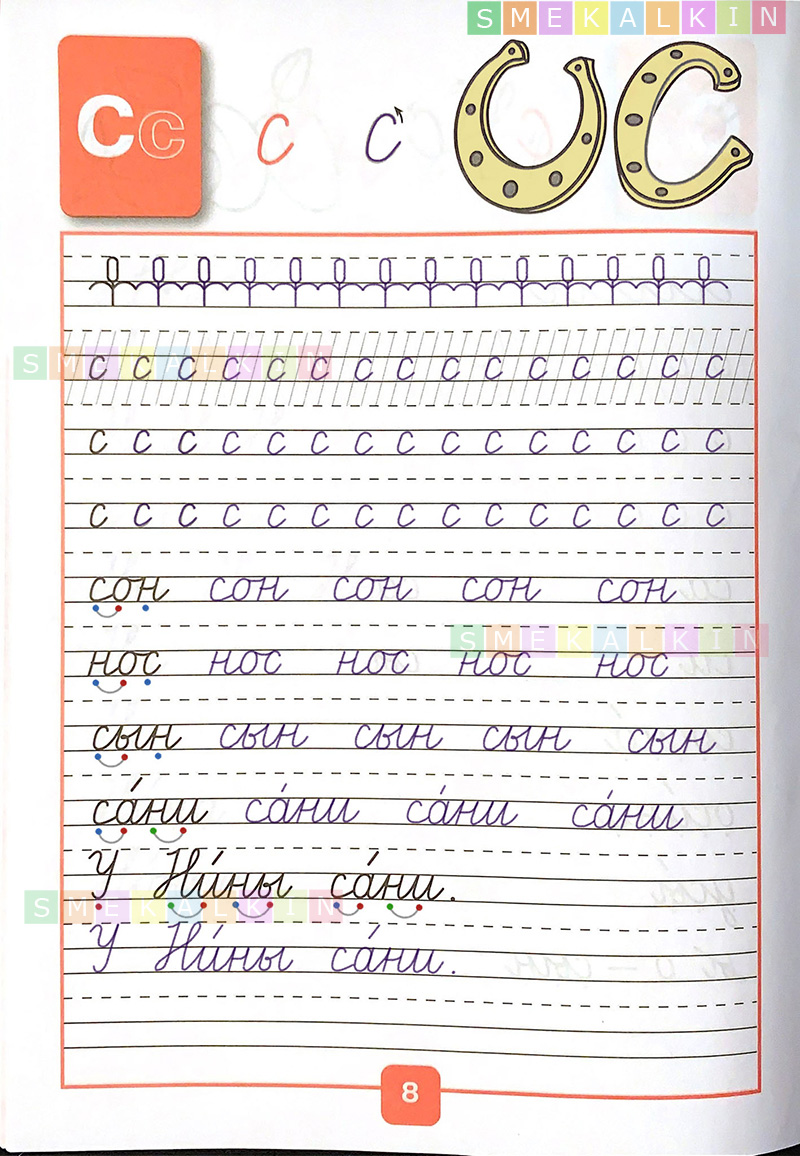 SMEKALKIN
Сс с с
с с с с с с с с с с с с с с с
SMEKALKIN
с с с с с с с с с с с с с с с
с с с с с с с с с с с с с с с
сон сон сон сон сон
SMEKALKIN
нос нос нос нос нос
сын сын сын сын сын
са́ни са́ни са́ни са́ни
У Ни́ны са́ни.
SMEKALKIN
У Ни́ны са́ни.
8